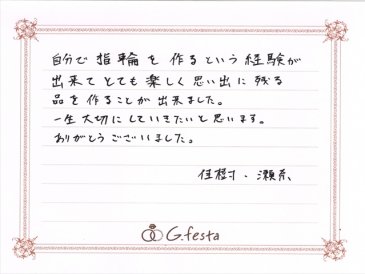 自分で指輪を作るという経験が
出来てとても楽しく思い出に残る
品を作ることが出来ました。
一生大切にしていきたいと思います。
ありがとうございました。
佳樹・瀬奈
G.festa